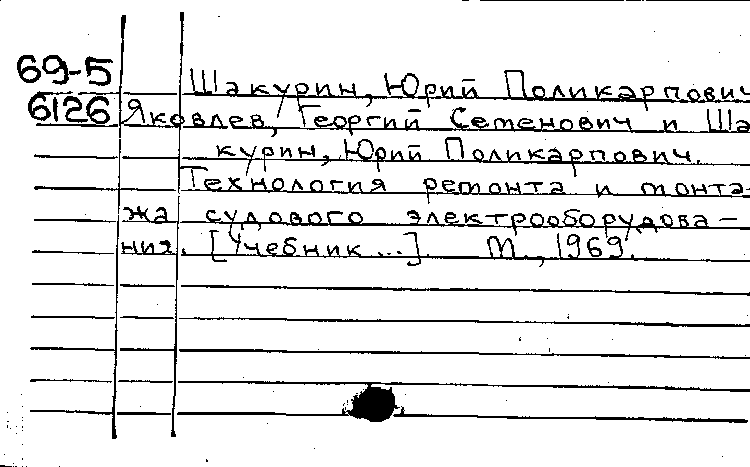 69-5 Шакурин, Юрий Поликарпович
6126 Яковлев, Георгий Семенович и Ша
курин, Юрий Поликарпович.
Технология ремонта и монта-
жа судового электрооборудова-
ния. [Учебник ...]. М., 1969.